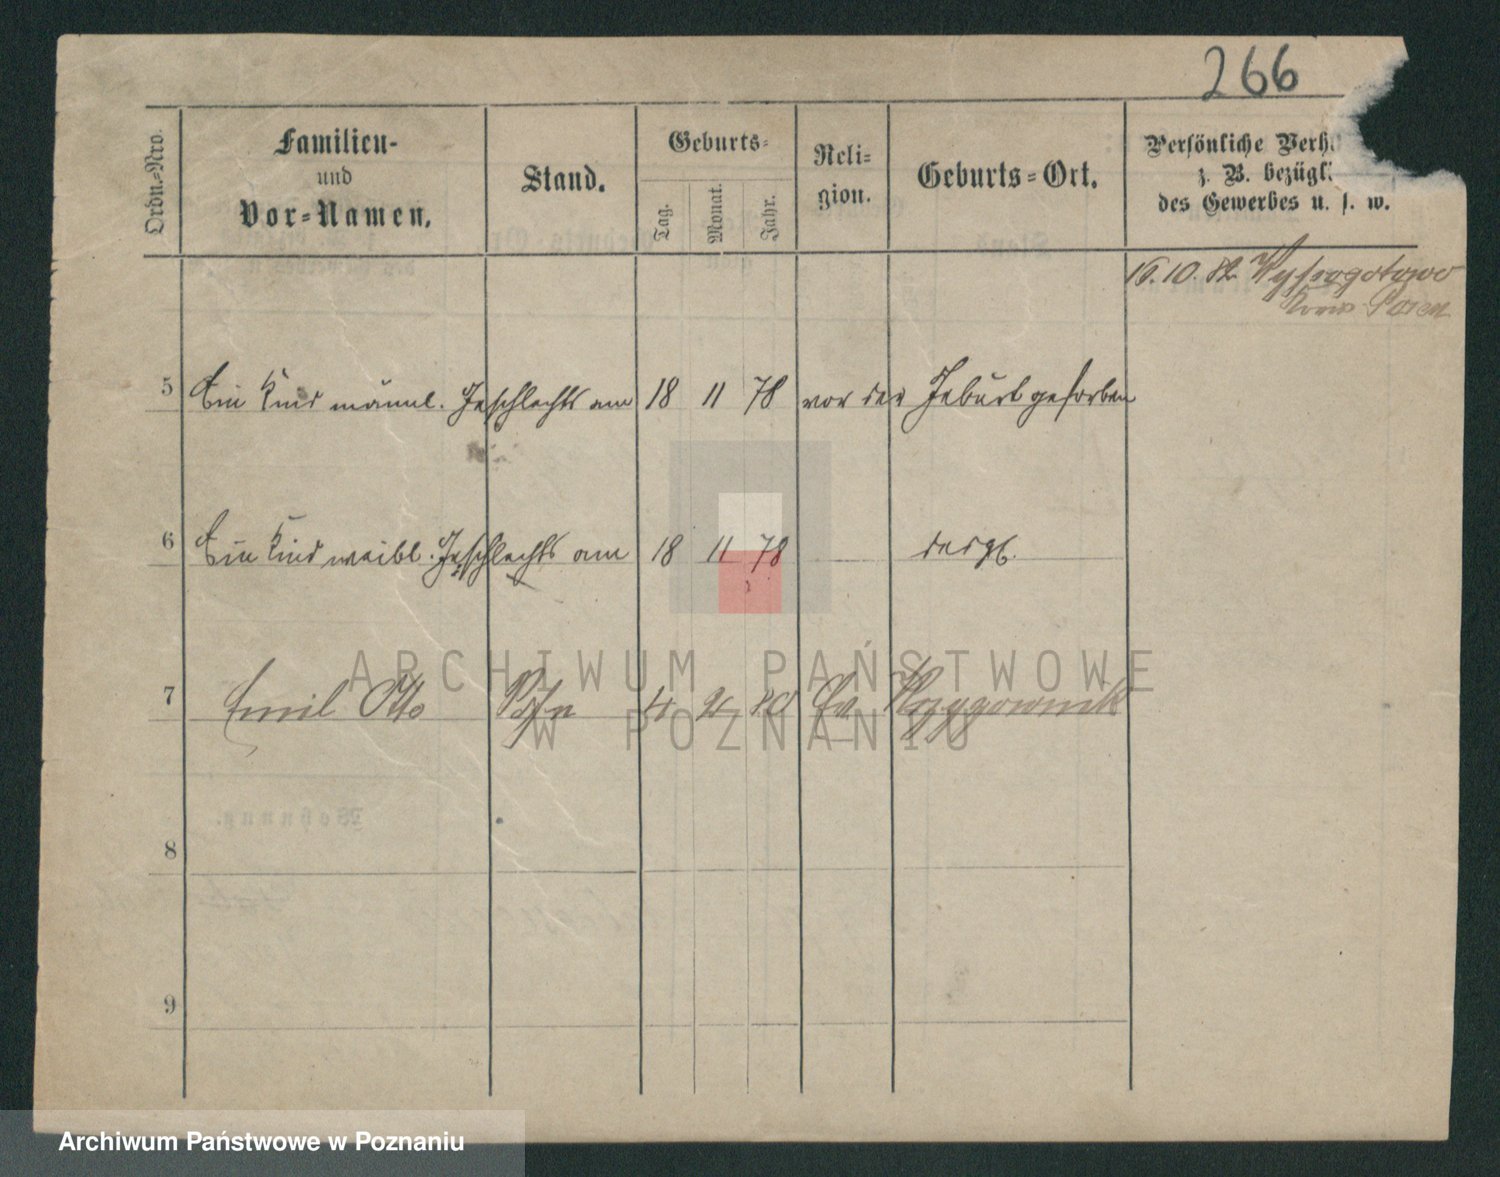 266
Ordn.-Nro.
Familien-
und
Vor-Namen.
Stand.
Geburts-
Tag.
Monat.
Jahr.
Reli-
gion.
Geburts-Ort.
Persönliche Verh
z. B. bezügl.
des Gewerbes u. s. w.
16.10.82. Wysogotowo
Kreis Posen
5 Ein Kind männl. Geschlechts am 18 11 78 vor der Geburt gestorben
6 Ein Kind weibl. Geschlechts am 18 11 78 desgl.
7 Emil Otto 2 80 Ev
8
9
Wohnung.
ARCHIWUM PAŃSTWOWE
W POZNANIU
Archiwum Państwowe w Poznaniu